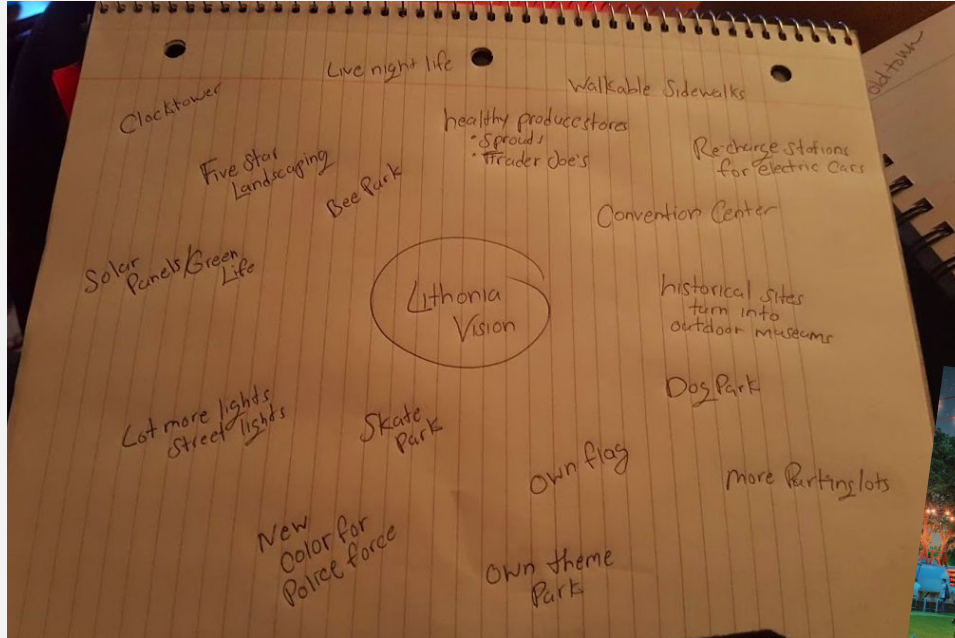 Live night life
Walkable Sidewalks
old town
Clocktower
healthy produce stores
• Sprouds
• Trader Joe's
Re-charge stations
for electric Cars
Five Star
Landscaping
Bee Park
Convention Center
Solar
Panels/Green
Life
Lithonia
Vision
historical sites
turn into
outdoor museums
Dog Park
Lot more lights
Street lights
Skate
Park
own flag
more Parking lots
New
Color for
Police force
own theme
Park